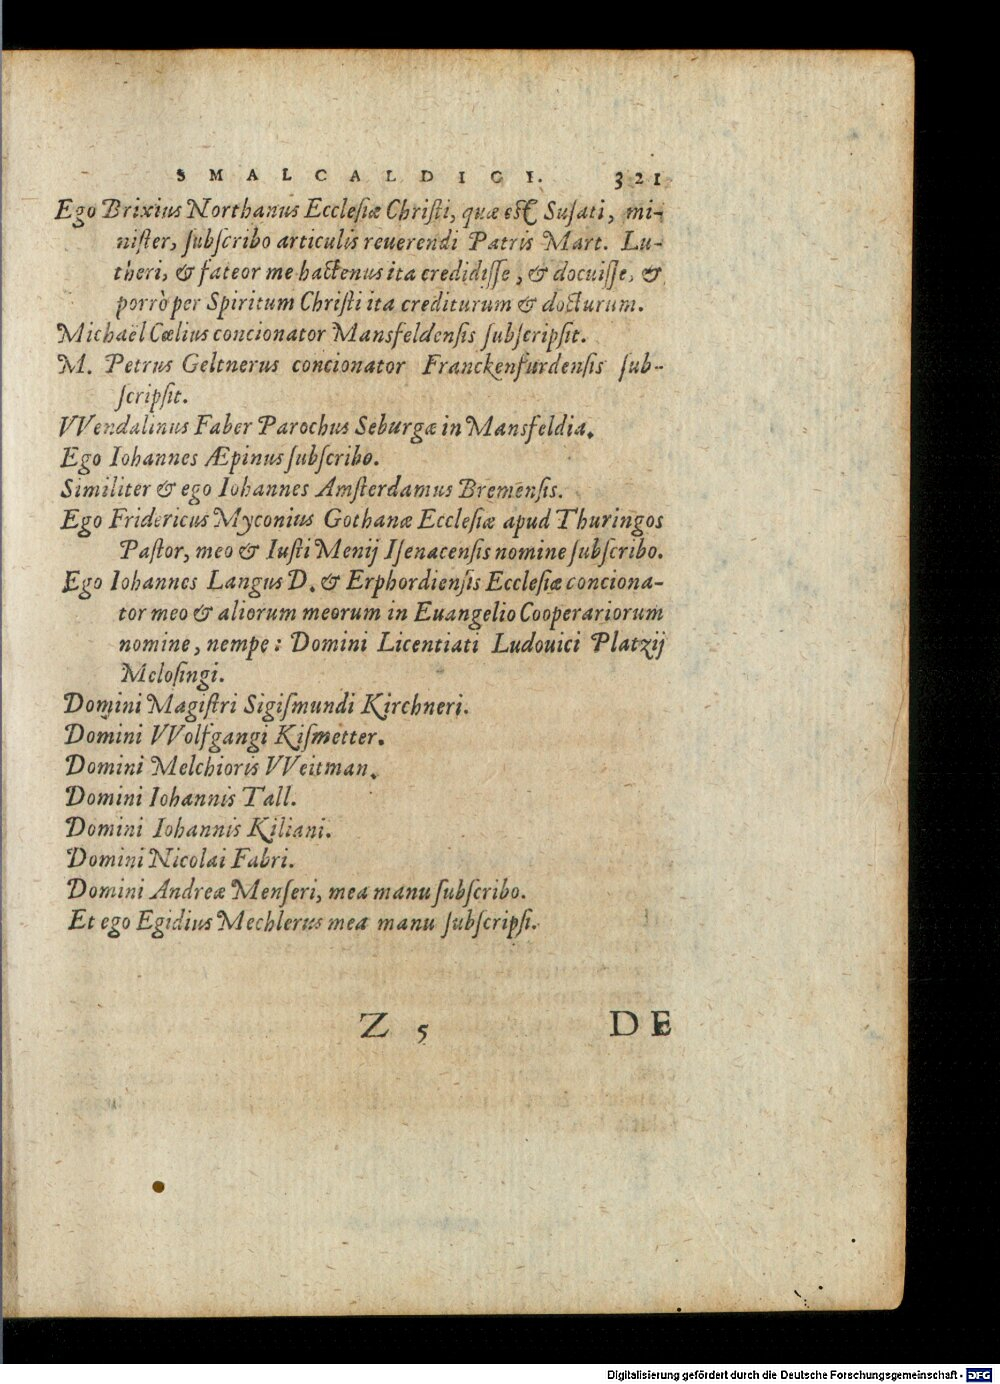 SMALCALDICI. 321
Ego Brixius Northanus Ecclesiæ Christi, quæ est Susati, mi-
nister, subscribo articulis reuerendi Patris Mart. Lu-
theri, & fateor me hactenus ita credidisse, & docuisse, &
porrò per Spiritum Christi ita crediturum & docturum.
Michaël Cœlius concionator Mansfeldensis subscripsit.
M. Petrus Geltnerus concionator Franckenfurdensis sub-
scripsit.
VVendalinus Faber Parochus Seburgæ in Mansfeldia.
Ego Iohannes Æpinus subscribo.
Similiter & ego Iohannes Amsterdamus Bremensis.
Ego Fridericus Myconius Gothanæ Ecclesiæ apud Thuringos
Pastor, meo & Iusti Menij Isenacensis nomine subscribo.
Ego Iohannes Langus D. & Erphordiensis Ecclesiæ conciona-
tor meo & aliorum meorum in Euangelio Cooperariorum
nomine, nempe: Domini Licentiati Ludouici Platzij
Melosingi.
Domini Magistri Sigismundi Kirchneri.
Domini VVolfgangi Kismetter.
Domini Melchioris VVeitman.
Domini Iohannis Tall.
Domini Iohannis Kiliani.
Domini Nicolai Fabri.
Domini Andreæ Menseri, mea manu subscribo.
Et ego Egidius Mechlerus mea manu subscripsi.
Z 5 DE
Digitalisierung gefördert durch die Deutsche Forschungsgemeinschaft - DFG